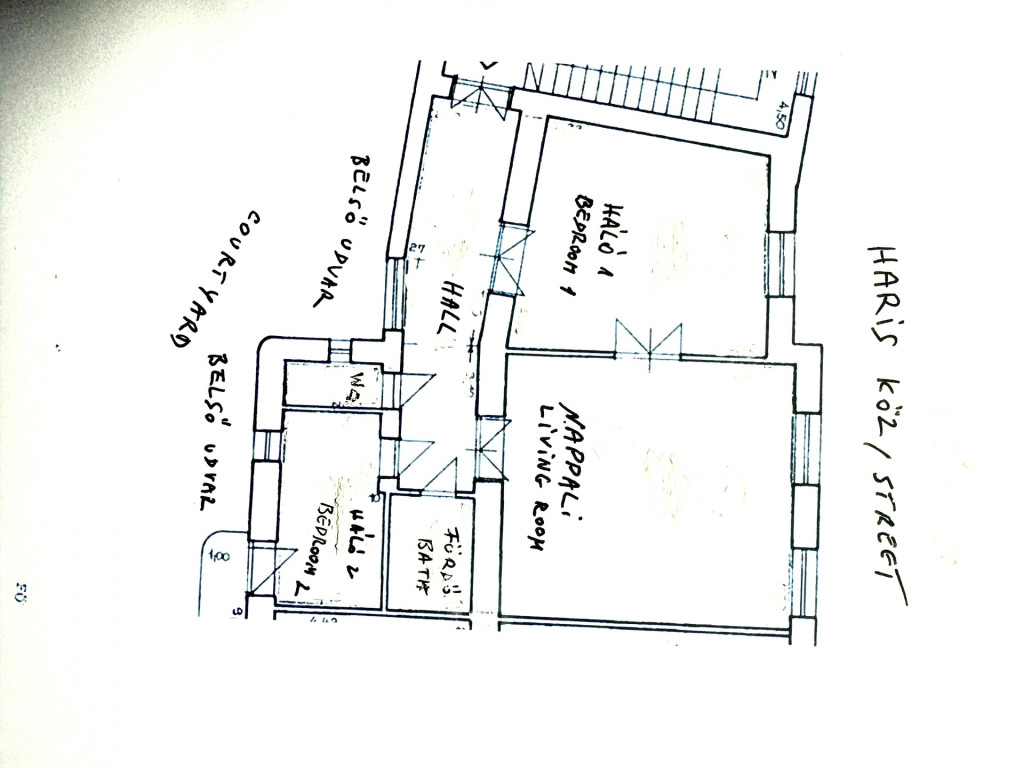 4,50
HÁLÓ 1
BEDROOM 1
HARIS KÖZ / STREET
BELSŐ UDVAR
COURTYARD
27
HALL
WC
BELSŐ UDVAR
NAPPALI
LIVING ROOM
HÁLÓ 2
BEDROOM 2
FÜRDŐ
BATH
1,00
4,42